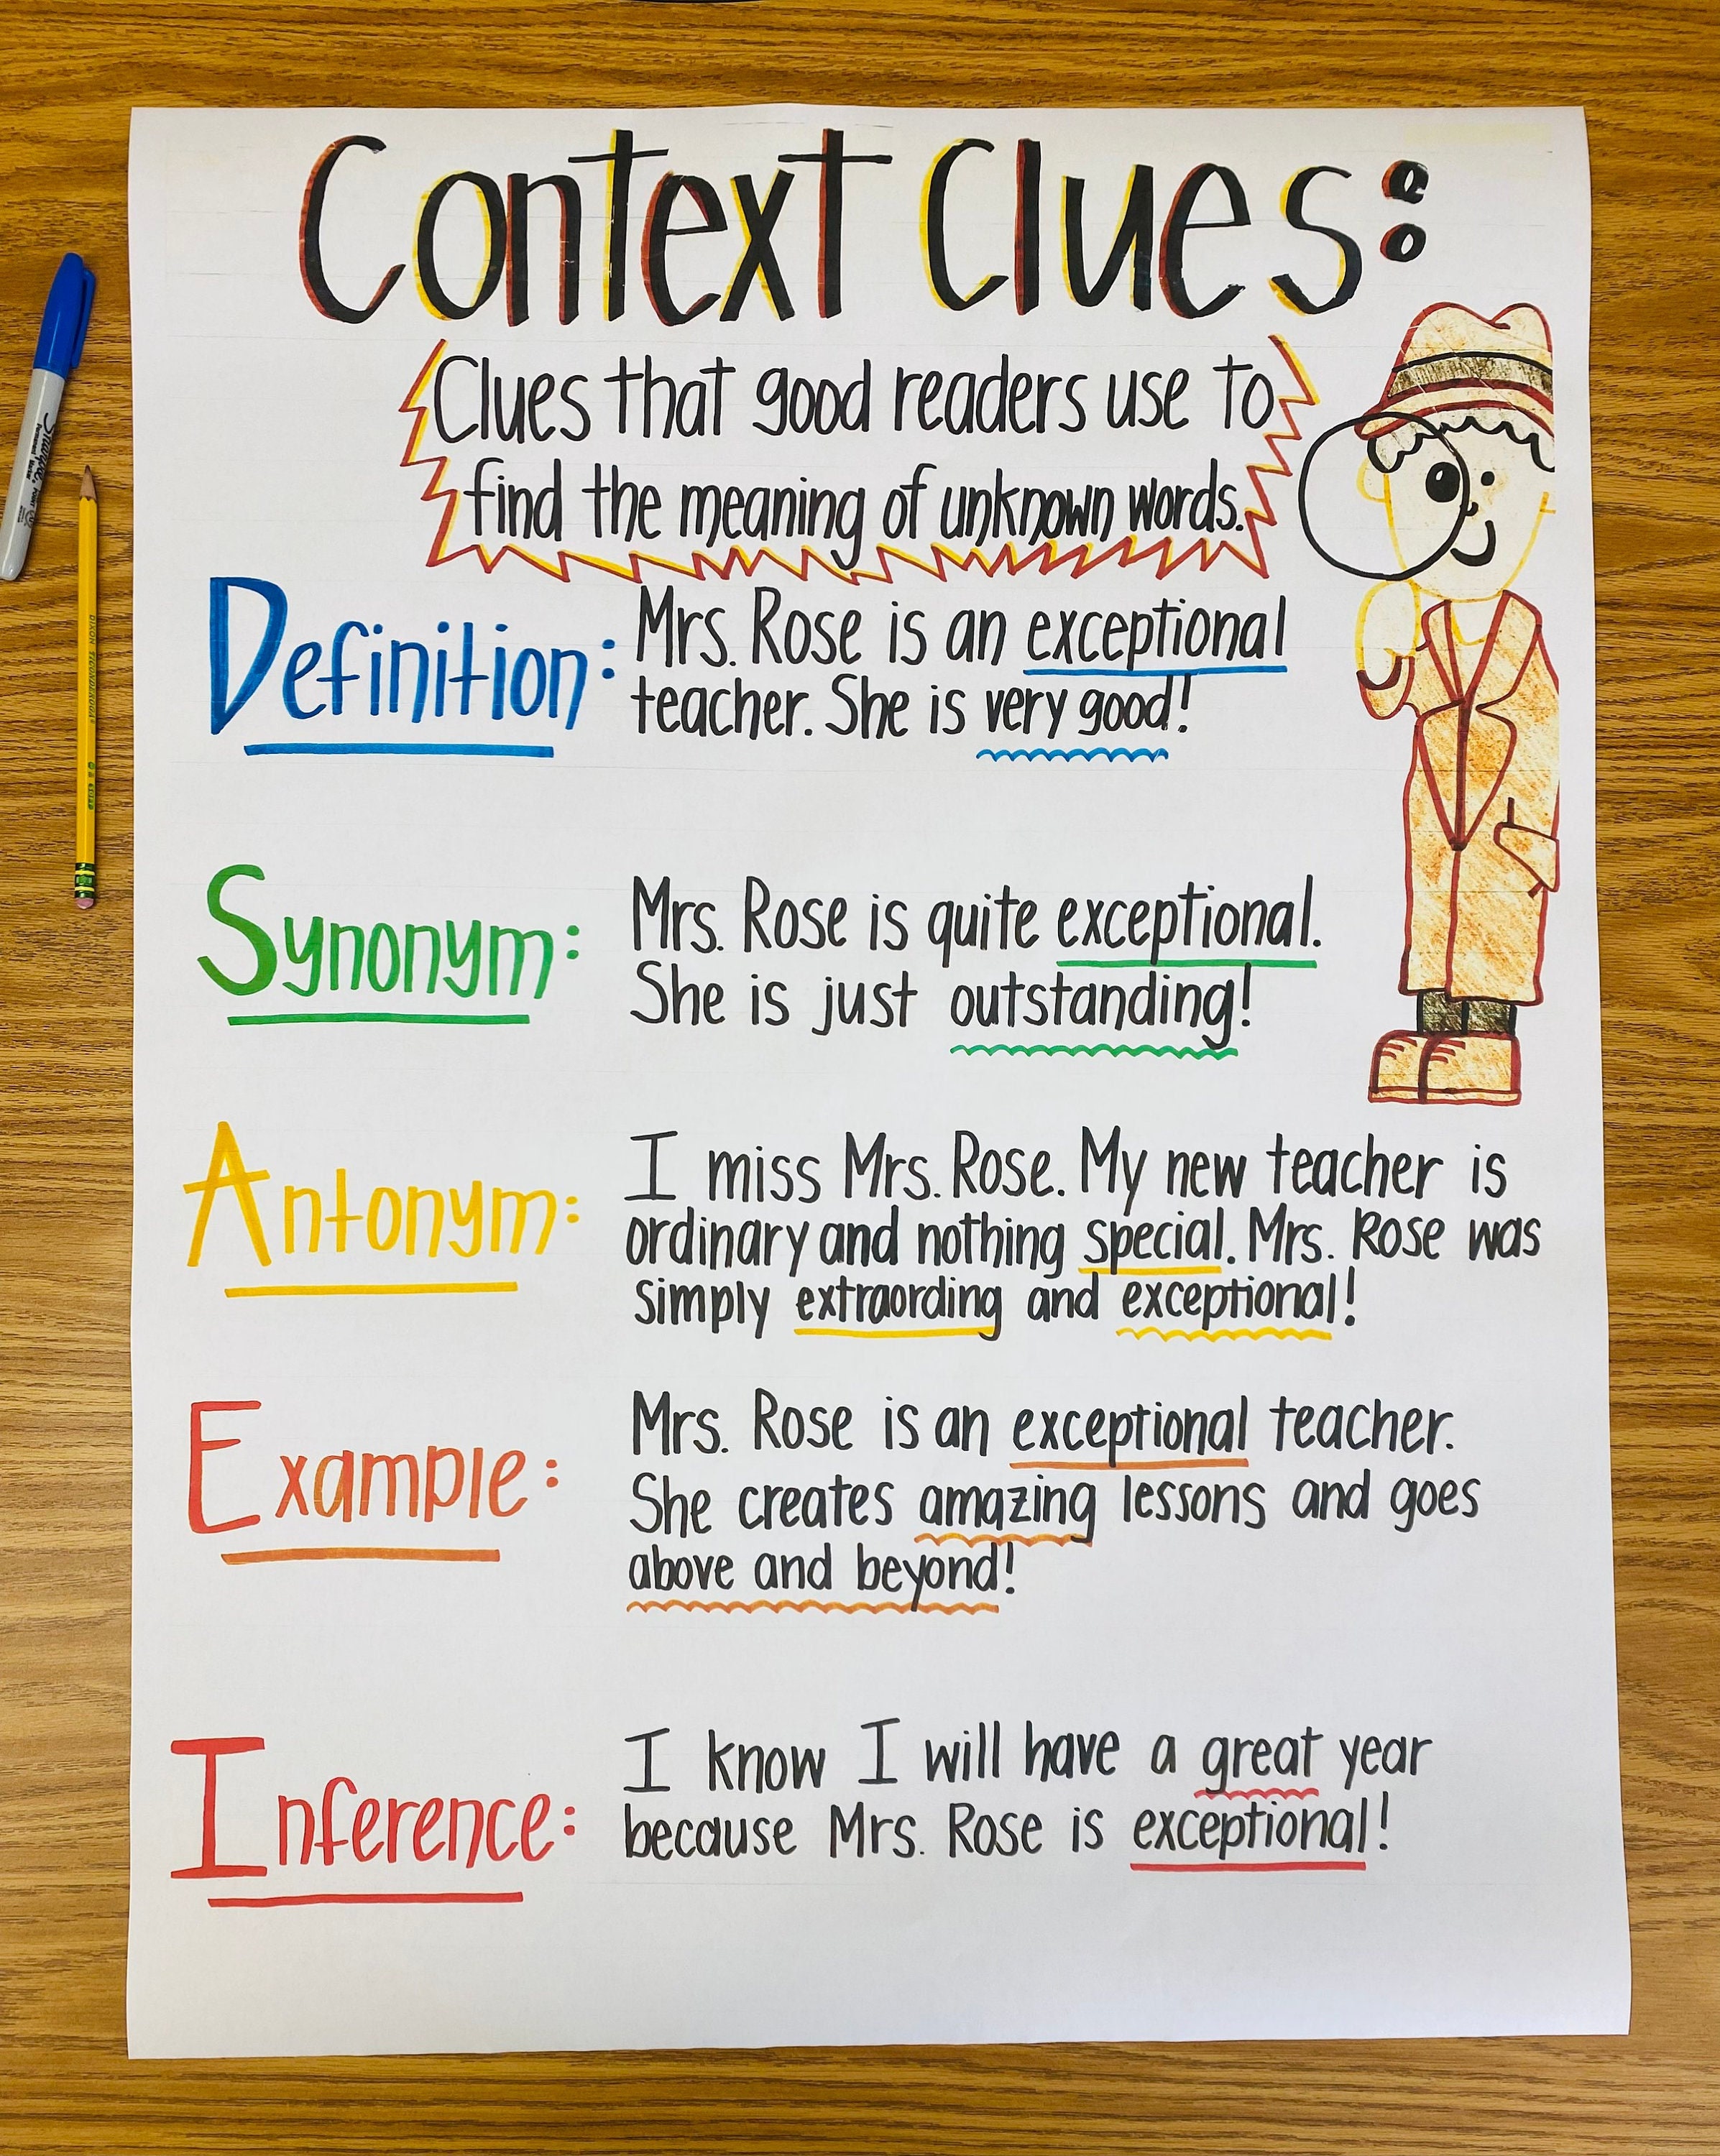 Context Clues:
Clues that good readers use to
find the meaning of unknown words.
Definition: Mrs. Rose is an exceptional
teacher. She is very good!
Synonym: Mrs. Rose is quite exceptional.
She is just outstanding!
Antonym: I miss Mrs. Rose. My new teacher is
ordinary and nothing special. Mrs. Rose was
simply extraording and exceptional!
Example: Mrs. Rose is an exceptional teacher.
She creates amazing lessons and goes
above and beyond!
Inference: I know I will have a great year
because Mrs. Rose is exceptional!
Sharpie
DIXON TICONDEROGA